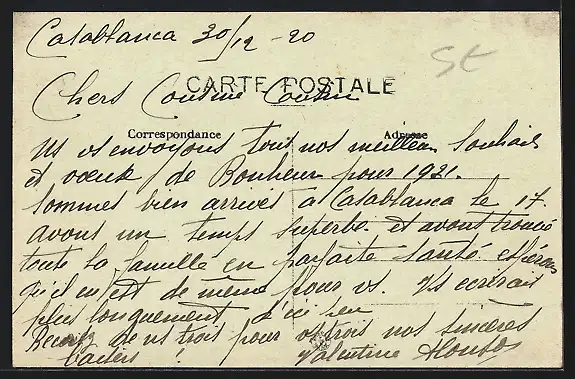 Casablanca 30/12-20
St
CARTE POSTALE
Chers Cousine Cousin
Correspondance
Adresse
Ns vs envoyons tous nos meilleurs souhaits
et voeux de Bonheur pour 1921.
Sommes bien arrivés à Casablanca le 17.
avons un temps superbe. et avons trouvé
toute la famille en parfaite santé. espérons
qu'il en est de même pour vs. Vs écrirai
plus longuement d'ici peu
Recevez de ns trois pour vs trois nos sincères
baisers !
Valentine